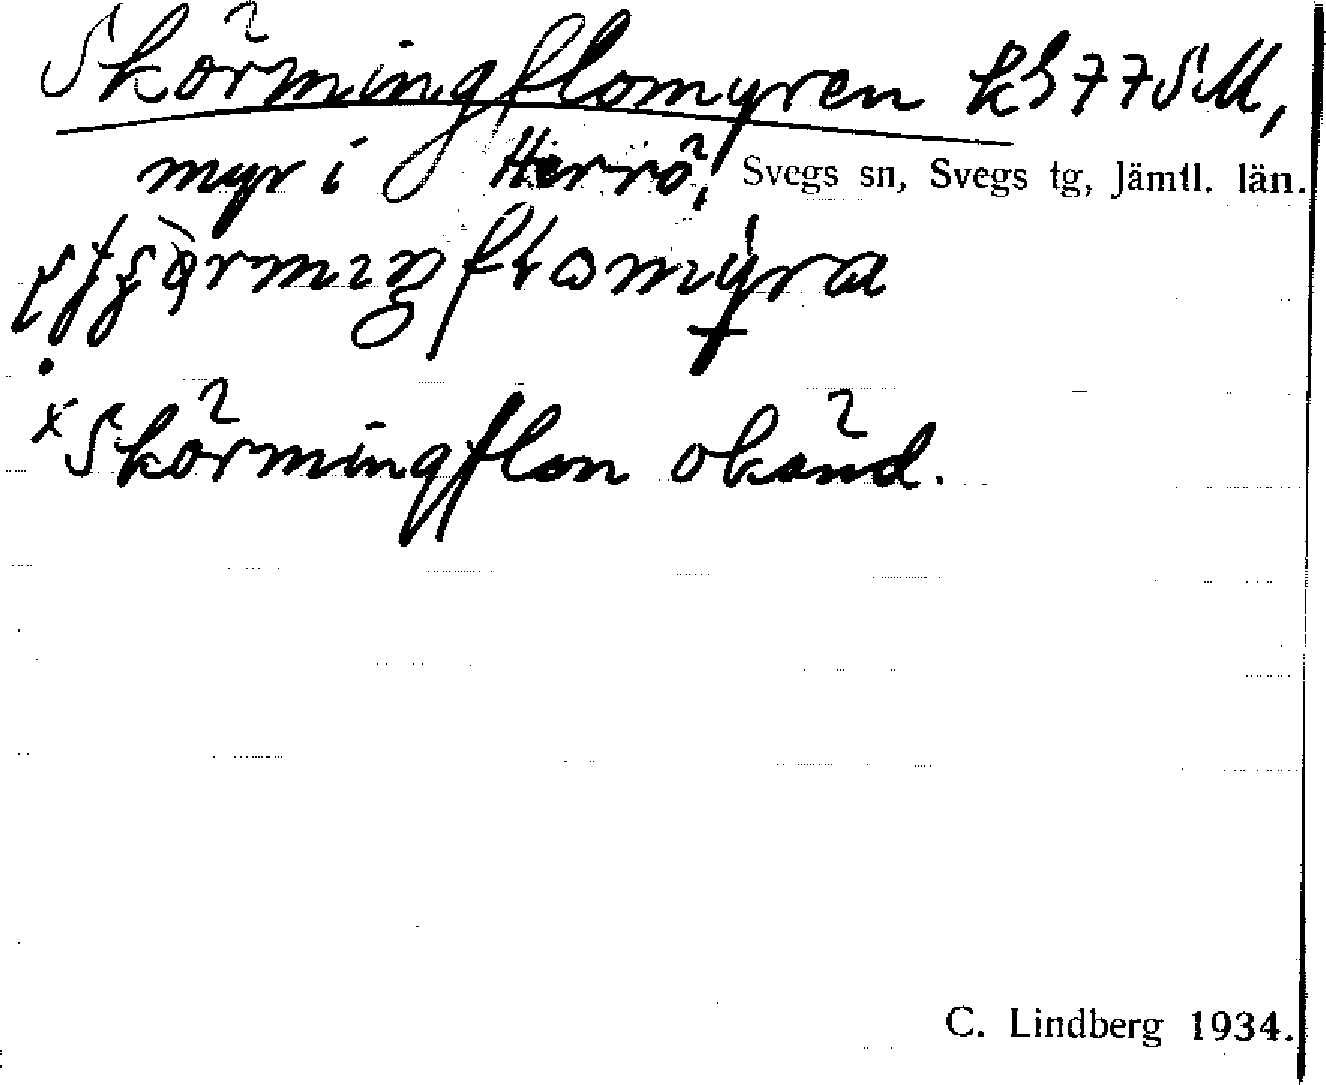 Skörmingflomyren kb 77 SM,
myr i Herrö, Svegs sn, Svegs tg, Jämtl. län.
Skörmingflon okänd.
C. Lindberg 1934.